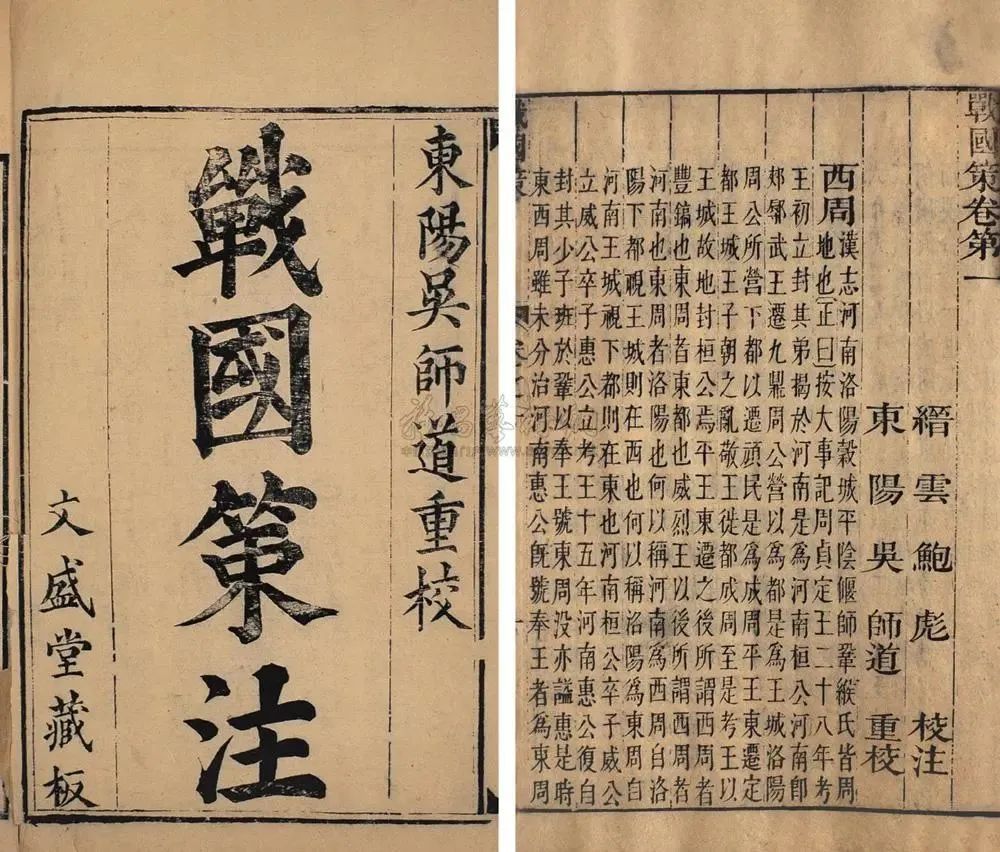 東陽吳師道重校
戰國策注
文盛堂藏板
戰國策卷第一
縉雲鮑彪校注
東陽吳師道重校
西周漢志河南洛陽穀城平陰偃師鞏緱氏皆周
地也正曰按大事記周貞定王二十八年考
王初立封其弟揭於河南是為河南桓公河南卽
郟鄏武王遷九鼎周公營以為都是為王城洛陽
周公所營下都以遷頑民是為成周平王東遷定
都王城王子朝之亂敬王徙都成周至是考王以
王城故地封桓公焉平王東遷之後所謂西周者
豐鎬也東周者東都也威烈王以後所謂西周者
河南也東周者洛陽也何以稱河南為西周自洛
陽下都視王城則在西也何以稱洛陽為東周自
河南王城視下都則在東也河南桓公卒子威公
立威公卒子惠公立考王十五年河南惠公復自
封其少子班於鞏以奉王號東周没亦謚惠是時
東西周雖未分治河南惠公旣號奉王者為東周